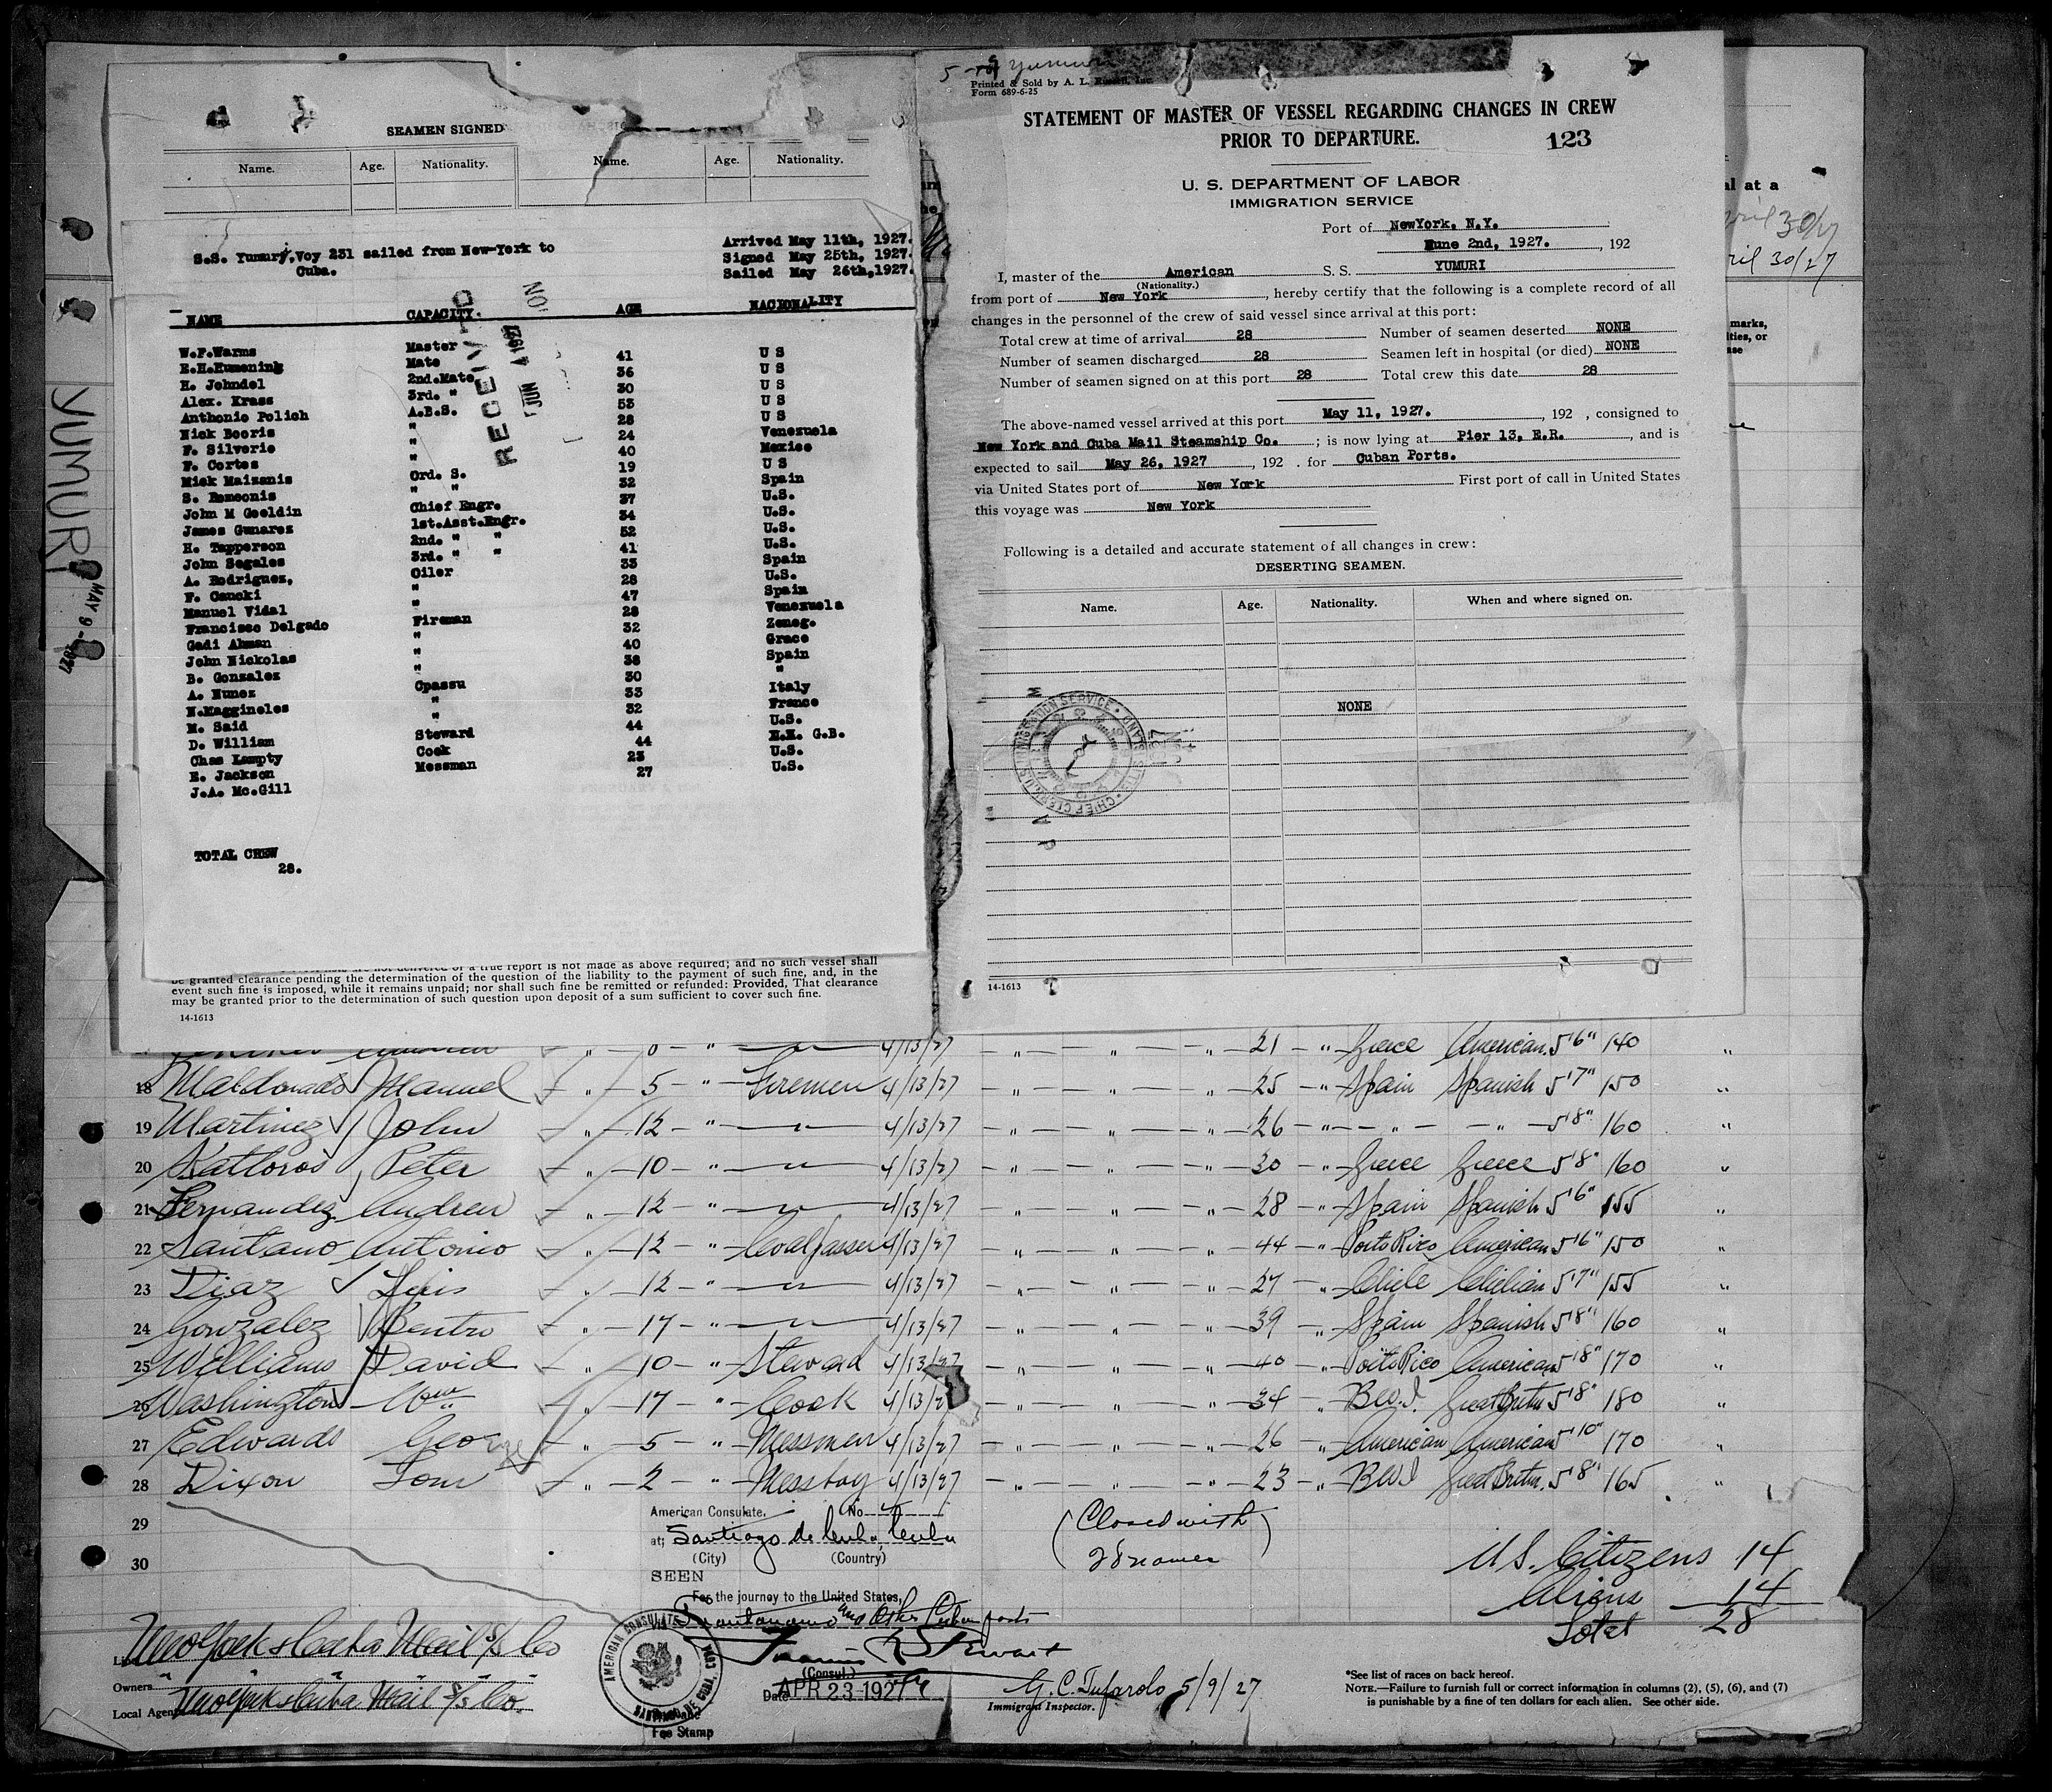 SEAMEN SIGNED
Name. Age. Nationality. Name. Age. Nationality.
S.S. Yumuri, Voy 231 sailed from New-York to
Cuba.
Arrived May 11th, 1927.
Signed May 25th, 1927.
Sailed May 26th, 1927.
NAME CAPACITY. AGE NACIONALITY
W.F.Warms Master 41 U S
Mate 36 U S
H. Johndel 2nd.Mate 30 U S
Alex. Krass 3rd. " 53 U S
Anthonio Polich A.B.S. 28 U S
Nick Booris " 24 Venezuela
F. Silverio " 40 Mexico
F. Cortes " 19 U S
Nick Maizanis Ord. S. 32 Spain
S. Romeonis " " 37 U.S.
John M Gooldin Chief Engr. 34 U.S.
James Gunarez 1st.Asst.Engr. 52 U.S.
H. Tapperson 2nd. " " 41 U.S.
John Segales 3rd. " " 33 Spain
A. Rodriguez, Oiler 28 U.S.
F. Canoki " 47 Spain
Manuel Vidal " 28 Venezuela
Francisco Delgado Fireman 32 Zeneg.
Gadi Ahman " 40 Grace
John Nickolas " 38 Spain
B. Gonzalez " 30 "
A. Nunez Cpassu 33 Italy
N.Maggineles " 32 France
M. Said " 44 U.S.
D. William Steward 44 G.B.
Chas Lampty Cook 23 U.S.
E. Jackson Messman 27 U.S.
J.A. Mc.Gill
TOTAL CREW
28.
RECEIVED
JUN 4 1927
YUMURI
MAY 9 - 1927
true report is not made as above required; and no such vessel shall
be granted clearance pending the determination of the question of the liability to the payment of such fine, and, in the
event such fine is imposed, while it remains unpaid; nor shall such fine be remitted or refunded: Provided, That clearance
may be granted prior to the determination of such question upon deposit of a sum sufficient to cover such fine.
14-1613
Yumuri
Printed & Sold by A. L. Russell, Inc.
Form 689-6-25
STATEMENT OF MASTER OF VESSEL REGARDING CHANGES IN CREW
PRIOR TO DEPARTURE.
123
U. S. DEPARTMENT OF LABOR
IMMIGRATION SERVICE
Port of NewYork, N.Y.
June 2nd, 1927. , 192
I, master of the American S. S. YUMURI
(Nationality.)
from port of New York , hereby certify that the following is a complete record of all
changes in the personnel of the crew of said vessel since arrival at this port:
Total crew at time of arrival 28 Number of seamen deserted NONE
Number of seamen discharged 28 Seamen left in hospital (or died) NONE
Number of seamen signed on at this port 28 Total crew this date 28
The above-named vessel arrived at this port May 11, 1927. , 192 , consigned to
New York and Cuba Mail Steamship Co. ; is now lying at Pier 13, E.R. , and is
expected to sail May 26, 1927 , 192 . for Cuban Ports.
via United States port of New York First port of call in United States
this voyage was New York
Following is a detailed and accurate statement of all changes in crew:
DESERTING SEAMEN.
Name. Age. Nationality. When and where signed on.
NONE
14-1613
al at a
April 30/27
ril 30/27
marks,
ities, or
4/13/27 21 " Greece American 5'6" 140 "
18 Maldonado Manuel " 5 " Firemen 4/13/27 " " " 25 " Spain Spanish 5'7" 150 "
19 Martinez John " 12 " " 4/13/27 " " " 26 " " " 5'8" 160 "
20 Katloros Peter " 10 " " 4/13/27 " " " 30 " Greece Greece 5'8" 160 "
21 Fernandez Andrew " 12 " " 4/13/27 " " " 28 " Spain Spanish 5'6" 155 "
22 Santano Antonio " 12 " Coal passer 4/13/27 " " " 44 " Porto Rico American 5'6" 150 "
23 Diaz Luis " 12 " " 4/13/27 " " " 27 " Chile Chilian 5'7" 155 "
24 Gonzalez Bentro " 17 " " 4/13/27 " " " 39 " Spain Spanish 5'8" 160 "
25 Williams David " 10 " Steward 4/13/27 " " " 40 " Porto Rico American 5'8" 170 "
26 Washington Wm " 17 " Cook 4/13/27 " " " 34 " B.W.I. Great Britn 5'8" 180 "
27 Edwards George " 5 " Messmen 4/13/27 " " " 26 " American American 5'10" 170 "
28 Dixon Tom " 2 " Messboy 4/13/27 " " 23 " BWI Great Britn. 5'8" 165 "
29
30
American Consulate, No
at Santiago de Cuba, Cuba
(City) (Country)
SEEN
For the journey to the United States,
Guantanamo and Other Cuban ports
Francis R Stewart
(Consul.)
Date APR 23 1927
Fee Stamp
AMERICAN CONSULATE SANTIAGO DE CUBA, CUBA
(Closed with
28 names)
U.S. Citizens 14
Aliens 14
Total 28
New York & Cuba Mail S/S Co
Owners " " " " " "
Local Agents New York & Cuba Mail S/S Co.
G. C. Tufarolo 5/9/27
Immigrant Inspector.
*See list of races on back hereof.
NOTE.—Failure to furnish full or correct information in columns (2), (5), (6), and (7)
is punishable by a fine of ten dollars for each alien. See other side.